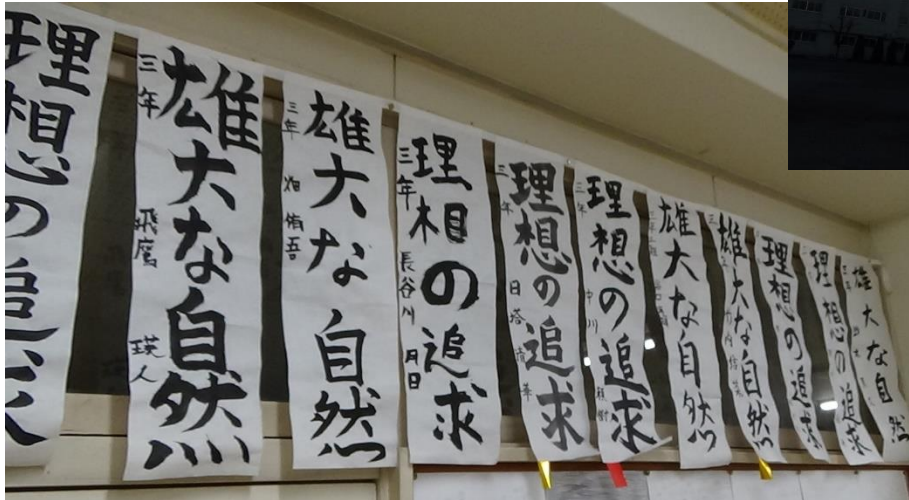 理想の追求
雄大な自然
三年 飛鷹 瑛人
雄大な自然
三年 畑 侑吾
理相の追求
三年 長谷川
理想の追求
三年
理想の追求
三年 中川
雄大な自然
雄大な自然
理想の追求
理想の追求
雄大な自然